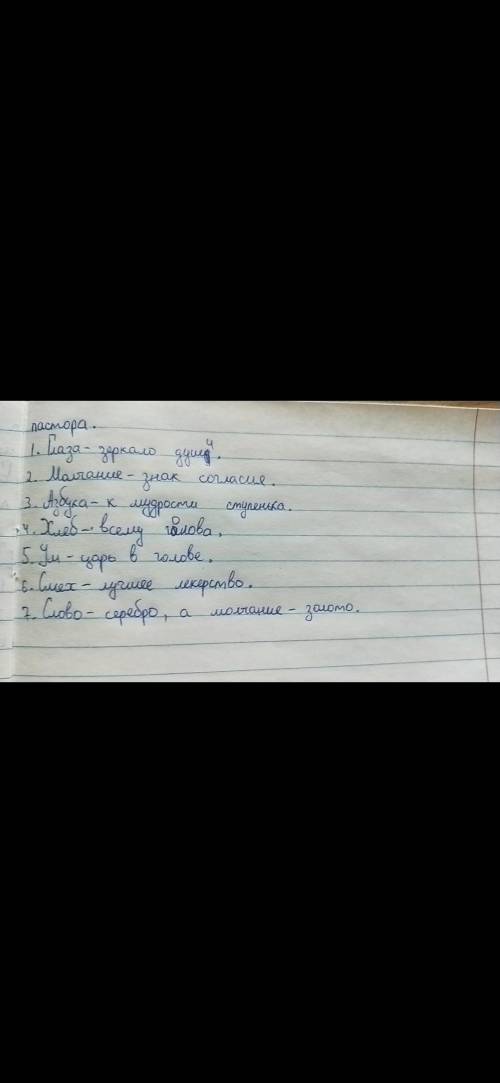 пастора.
1. Глаза - зеркало души.
2. Молчание - знак согласие.
3. Азбука - к мудрости ступенька.
4. Хлеб - всему голова.
5. Ум - царь в голове.
6. Смех - лучшее лекерство.
7. Слово - серебро, а молчание - золото.